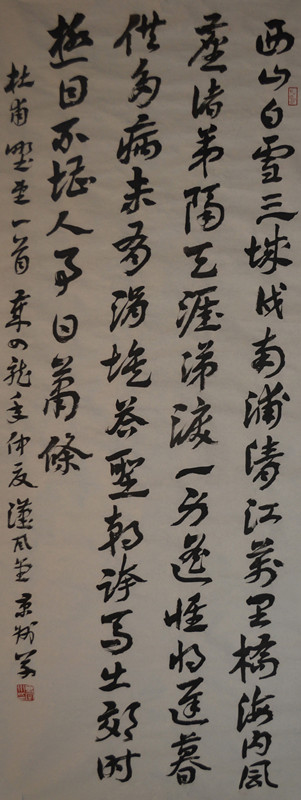 西山白雪三城戍南浦清江萬里橋海内風
塵諸弟隔天涯涕淚一身遙惟将遲暮
供多病未有涓埃答聖朝跨馬出郊时
極目不堪人事日蕭條
杜甫野望一首 龍年仲夏漢風堂